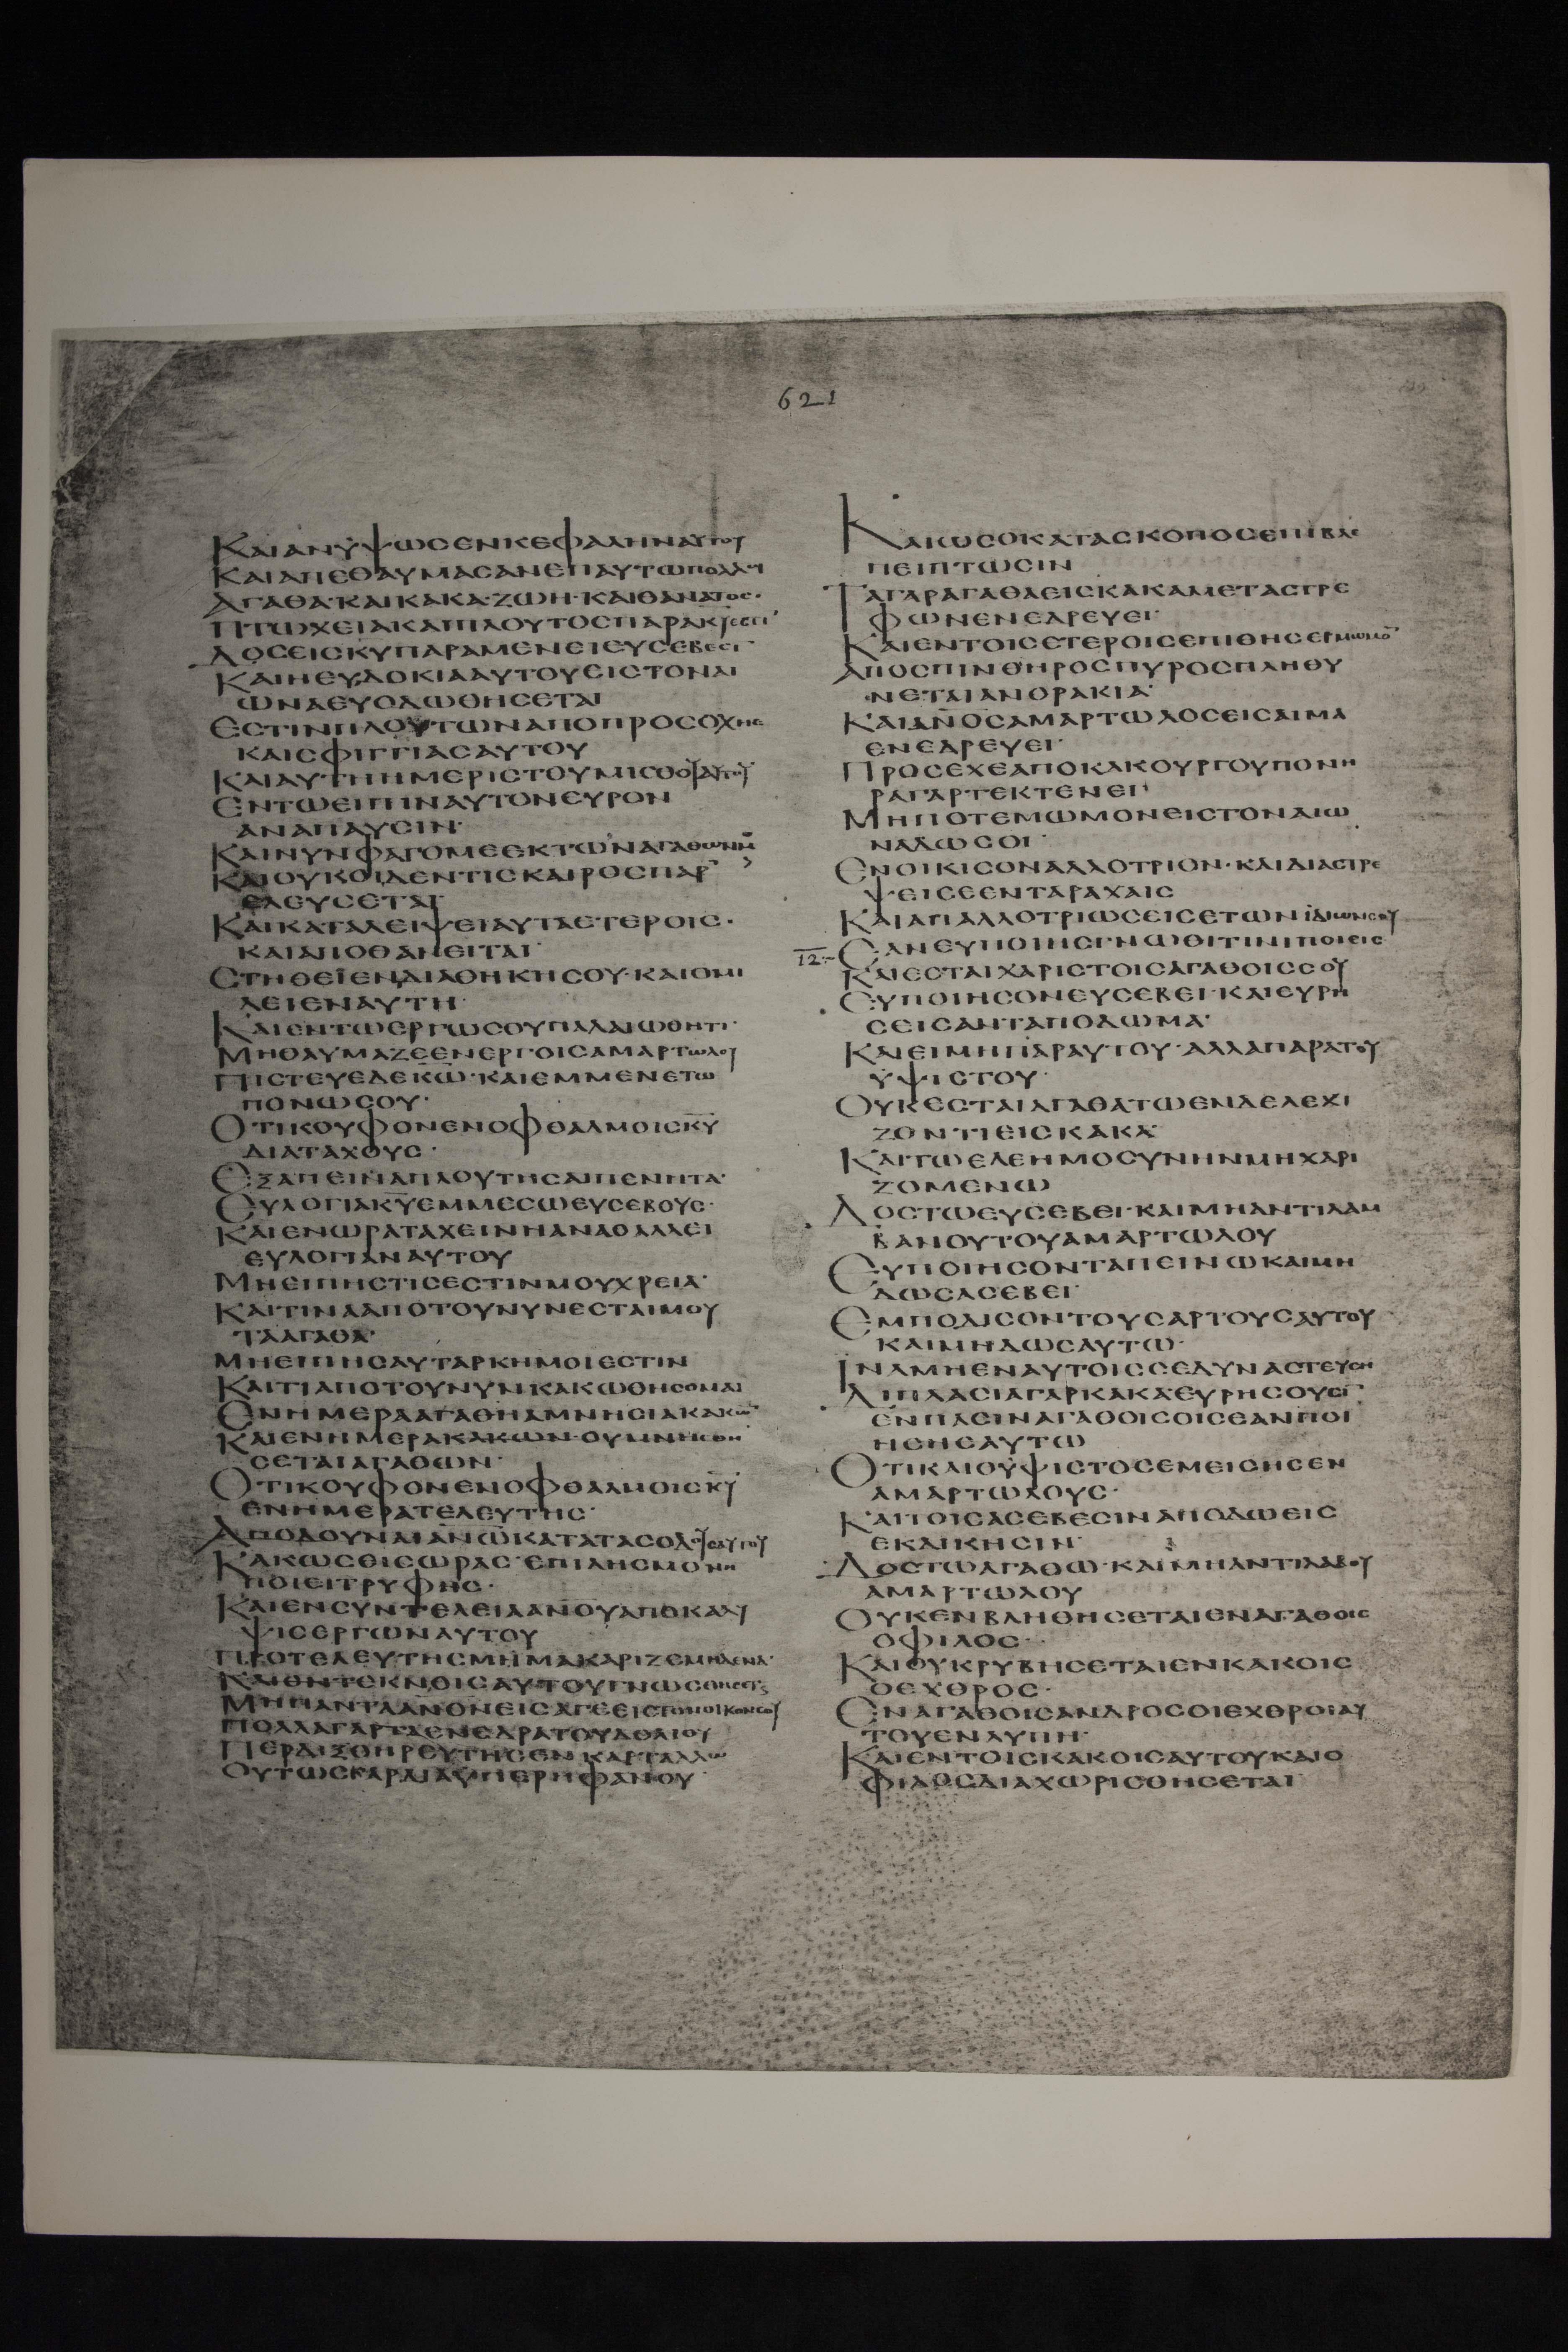 621
ΚΑΙΑΝΥΨΩϹΕΝΚΕΦΑΛΗΝΑΥΤΟΥ
ΚΑΙΑΠΕΘΑΥΜΑϹΑΝΕΠΑΥΤΩΠΟΛΛΟΙ
ΑΓΑΘΑ·ΚΑΙΚΑΚΑ·ΖΩΗ·ΚΑΙΘΑΝΑΤΟϹ·
ΠΤΩΧΕΙΑΚΑΙΠΛΟΥΤΟϹΠΑΡΑΚ̅Υ̅ΕϹΤΙ
ΔΟϹΕΙϹΚΥΠΑΡΑΜΕΝΕΙΕΥϹΕΒΕϹΙ
ΚΑΙΗΕΥΔΟΚΙΑΑΥΤΟΥΕΙϹΤΟΝΑΙ
ΩΝΑΕΥΟΔΩΘΗϹΕΤΑΙ
ΕϹΤΙΝΠΛΟΥΤΩΝΑΠΟΠΡΟϹΟΧΗϹ
ΚΑΙϹΦΙΓΓΙΑϹΑΥΤΟΥ
ΚΑΙΑΥΤΗΗΜΕΡΙϹΤΟΥΜΙϹΘΟΥΑΥΤΟΥ
ΕΝΤΩΕΙΠΙΝΑΥΤΟΝΕΥΡΟΝ
ΑΝΑΠΑΥϹΙΝ·
ΚΑΙΝΥΝΦΑΓΟΜΕΕΚΤΩΝΑΓΑΘΩΝΜ̅
ΚΑΙΟΥΚΟΙΔΕΝΤΙϹΚΑΙΡΟϹΠΑΡ
ΕΛΕΥϹΕΤΑΙ
ΚΑΙΚΑΤΑΛΕΙΨΕΙΑΥΤΑΕΤΕΡΟΙϹ·
ΚΑΙΑΠΟΘΑΝΕΙΤΑΙ
ϹΤΗΘΕΙΕΝΔΙΑΘΗΚΗϹΟΥ·ΚΑΙΟΜΙ
ΛΕΙΕΝΑΥΤΗ·
ΚΑΙΕΝΤΩΕΡΓΩϹΟΥΠΑΛΑΙΩΘΗΤΙ·
ΜΗΘΑΥΜΑΖΕΕΝΕΡΓΟΙϹΑΜΑΡΤΩΛΟΥ
ΠΙϹΤΕΥΕΔΕΚ̅Ω̅·ΚΑΙΕΜΜΕΝΕΤΩ
ΠΟΝΩϹΟΥ·
ΟΤΙΚΟΥΦΟΝΕΝΟΦΘΑΛΜΟΙϹΚ̅Υ̅
ΔΙΑΤΑΧΟΥϹ·
ΕΞΑΠΕΙΝΑΠΛΟΥΤΗϹΑΙΠΕΝΗΤΑ·
ΕΥΛΟΓΙΑΚ̅Υ̅ΕΜΜΕϹΩΕΥϹΕΒΟΥϹ·
ΚΑΙΕΝΩΡΑΤΑΧΕΙΝΗΑΝΑΘΑΛΛΕΙ
ΕΥΛΟΓΙΑΝΑΥΤΟΥ
ΜΗΕΙΠΗϹΤΙϹΕϹΤΙΝΜΟΥΧΡΕΙΑ·
ΚΑΙΤΙΝΑΑΠΟΤΟΥΝΥΝΕϹΤΑΙΜΟΥ
ΤΑΑΓΑΘΑ·
ΜΗΕΙΠΗϹΑΥΤΑΡΚΗΜΟΙΕϹΤΙΝ
ΚΑΙΤΙΑΠΟΤΟΥΝΥΝΚΑΚΩΘΗϹΟΜΑΙ
ΕΝΗΜΕΡΑΑΓΑΘΗΑΜΝΗϹΙΑΚΑΚΩ̅
ΚΑΙΕΝΗΜΕΡΑΚΑΚΩΝ·ΟΥΜΝΗϹΘΗ
ϹΕΤΑΙΑΓΑΘΩΝ·
ΟΤΙΚΟΥΦΟΝΕΝΟΦΘΑΛΜΟΙϹΚ̅Υ̅
ΕΝΗΜΕΡΑΤΕΛΕΥΤΗϹ·
ΑΠΟΔΟΥΝΑΙΑ̅Ν̅Ω̅ΚΑΤΑΤΑϹΟΔΟΥϹΑΥΤΟΥ
ΚΑΚΩϹΘΙϹΩΡΑϹ·ΕΠΙΛΗϹΜΟΝΗ
ΠΟΙΕΙΤΡΥΦΗϹ·
ΚΑΙΕΝϹΥΝΤΕΛΕΙΑΑ̅Ν̅Ο̅Υ̅ΑΠΟΚΑΛΥ
ΨΙϹΕΡΓΩΝΑΥΤΟΥ
ΠΡΟΤΕΛΕΥΤΗϹΜΗΜΑΚΑΡΙΖΕΜΗΔΕΝΑ·
ΚΑΙΕΝΤΕΚΝΟΙϹΑΥΤΟΥΓΝΩϹΘΗϹΕΤ
ΜΗΠΑΝΤΑΑΝΟΝΕΙϹΑΓΕΕΙϹΤΟΝΟΙΚΟΝϹΟΥ
ΠΟΛΛΑΓΑΡΤΑΕΝΕΔΡΑΤΟΥΔΟΛΙΟΥ
ΠΕΡΔΙΞΘΗΡΕΥΤΗϹΕΝΚΑΡΤΑΛΛΩ
ΟΥΤΩϹΚΑΡΔΙΑΥΠΕΡΗΦΑΝΟΥ·
ΚΑΙΩϹΟΚΑΤΑϹΚΟΠΟϹΕΠΙΒΛΕ
ΠΕΙΠΤΩϹΙΝ
ΤΑΓΑΡΑΓΑΘΑΕΙϹΚΑΚΑΜΕΤΑϹΤΡΕ
ΦΩΝΕΝΕΔΡΕΥΕΙ·
ΚΑΙΕΝΤΟΙϹΕΤΕΡΟΙϹΕΠΙΘΗϹΕΙΜΩΜΟ̅
ΑΠΟϹΠΙΝΘΗΡΟϹΠΥΡΟϹΠΛΗΘΥ
ΝΕΤΑΙΑΝΘΡΑΚΙΑ·
ΚΑΙΑ̅Ν̅Ο̅ϹΑΜΑΡΤΩΛΟϹΕΙϹΑΙΜΑ
ΕΝΕΔΡΕΥΕΙ·
ΠΡΟϹΕΧΕΑΠΟΚΑΚΟΥΡΓΟΥΠΟΝΗ
ΡΑΓΑΡΤΕΚΤΕΝΕΙ
ΜΗΠΟΤΕΜΩΜΟΝΕΙϹΤΟΝΑΙΩ
ΝΑΔΩϹΟΙ·
ΕΝΟΙΚΙϹΟΝΑΛΛΟΤΡΙΟΝ·ΚΑΙΔΙΑϹΤΡΕ
ΨΕΙϹΕΕΝΤΑΡΑΧΑΙϹ
ΚΑΙΑΠΑΛΛΟΤΡΙΩϹΕΙϹΕΤΩΝΙΔΙΩΝϹΟΥ
12 ΕΑΝΕΥΠΟΙΗϹΓΝΩΘΙΤΙΝΙΠΟΙΕΙϹ
ΚΑΙΕϹΤΑΙΧΑΡΙϹΤΟΙϹΑΓΑΘΟΙϹϹΟΥ
ΕΥΠΟΙΗϹΟΝΕΥϹΕΒΕΙ·ΚΑΙΕΥΡΗ
ϹΕΙϹΑΝΤΑΠΟΔΩΜΑ·
ΚΑΙΕΙΜΗΠΑΡΑΥΤΟΥ·ΑΛΛΑΠΑΡΑΤΟΥ
ΥΨΙϹΤΟΥ·
ΟΥΚΕϹΤΑΙΑΓΑΘΑΤΩΕΝΔΕΛΕΧΙ
ΖΟΝΤΙΕΙϹΚΑΚΑ·
ΚΑΙΤΩΕΛΕΗΜΟϹΥΝΗΝΜΗΧΑΡΙ
ΖΟΜΕΝΩ
ΔΟϹΤΩΕΥϹΕΒΕΙ·ΚΑΙΜΗΑΝΤΙΛΑΜ
ΒΑΝΟΥΤΟΥΑΜΑΡΤΩΛΟΥ
ΕΥΠΟΙΗϹΟΝΤΑΠΕΙΝΩΚΑΙΜΗ
ΔΩϹΑϹΕΒΕΙ·
ΕΜΠΟΔΙϹΟΝΤΟΥϹΑΡΤΟΥϹΑΥΤΟΥ
ΚΑΙΜΗΔΩϹΑΥΤΩ·
ΙΝΑΜΗΕΝΑΥΤΟΙϹϹΕΔΥΝΑϹΤΕΥϹΗ
ΔΙΠΛΑϹΙΑΓΑΡΚΑΚΑΕΥΡΗϹΟΥϹΙ
ΕΝΠΑϹΙΝΑΓΑΘΟΙϹΟΙϹΕΑΝΠΟΙ
ΗϹΗϹΑΥΤΩ
ΟΤΙΚΑΙΟΥΨΙϹΤΟϹΕΜΕΙϹΗϹΕΝ
ΑΜΑΡΤΩΛΟΥϹ·
ΚΑΙΤΟΙϹΑϹΕΒΕϹΙΝΑΠΟΔΩΕΙϹ
ΕΚΔΙΚΗϹΙΝ·
ΔΟϹΤΩΑΓΑΘΩ·ΚΑΙΜΗΑΝΤΙΛΑΒΟΥ
ΑΜΑΡΤΩΛΟΥ
ΟΥΚΕΝΒΛΗΘΗϹΕΤΑΙΕΝΑΓΑΘΟΙϹ
ΟΦΙΛΟϹ·
ΚΑΙΟΥΚΡΥΒΗϹΕΤΑΙΕΝΚΑΚΟΙϹ
ΟΕΧΘΡΟϹ·
ΕΝΑΓΑΘΟΙϹΑΝΔΡΟϹΟΙΕΧΘΡΟΙΑΥ
ΤΟΥΕΝΛΥΠΗ·
ΚΑΙΕΝΤΟΙϹΚΑΚΟΙϹΑΥΤΟΥΚΑΙΟ
ΦΙΛΟϹΔΙΑΧΩΡΙϹΘΗϹΕΤΑΙ